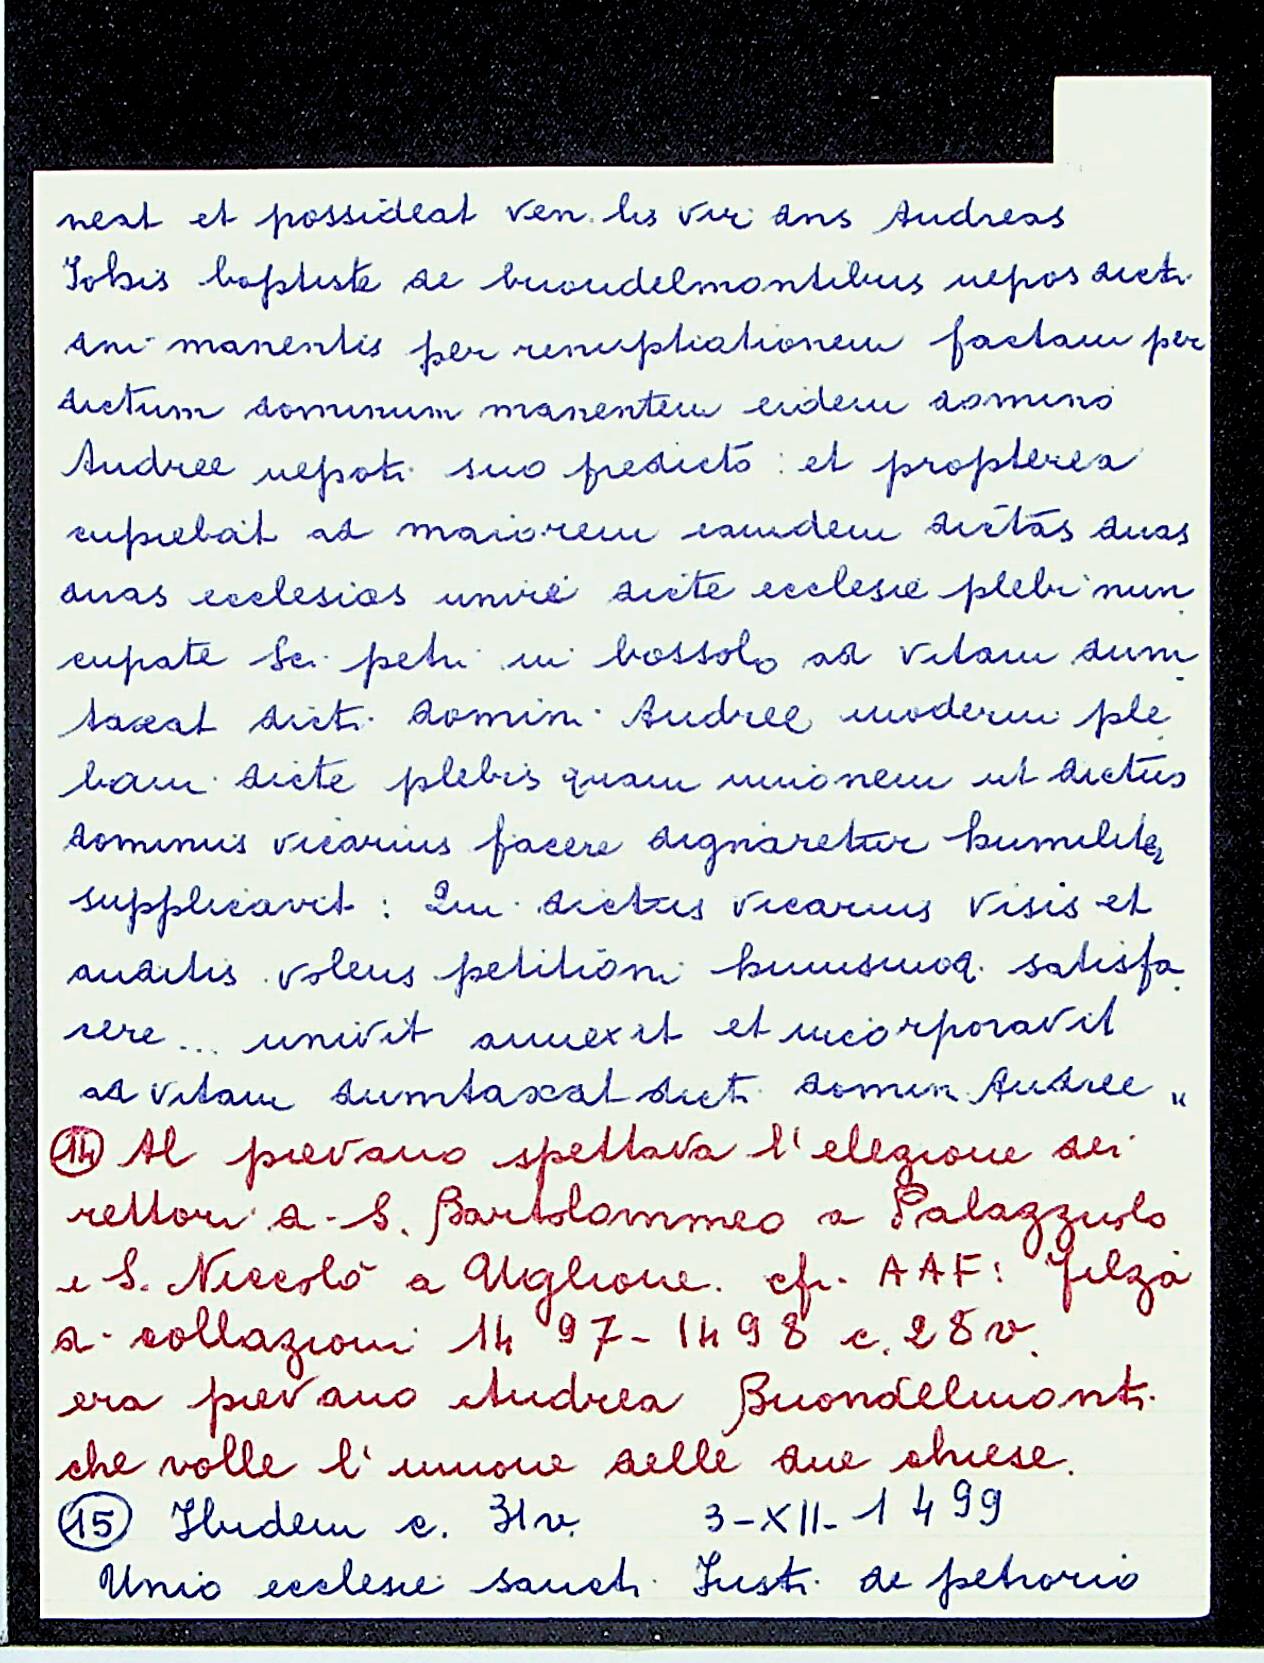 neat et possideat ven. lis vir dns Andreas
Johis baptiste de buondelmontibus nepos dicti
dni manentis per renuptiationem factam per
dictum dominum manentem eidem domino
Andree nepoti suo predicto : et propterea
cupiebat ad maiorem eamdem dictas duas
duas ecclesias unire dicte ecclesie plebi nun
cupate Sci petri in bossolo ad vitam dum
taxat dicti domini Andree moderni ple
bani dicte plebis quam unionem ut dictus
dominus vicarius facere dignaretur humiliter
supplicavit : Qui dictus vicarius visis et
auditis volens petitioni huiusmoq. satisfa
cere ... univit annexit et incorporavit
ad vitam dumtaxat dicti domin. Andree "
14 Al pievano spettava l'elezione dei
rettori d. S. Bartolommeo a Palazzuolo
e S. Niccolò a Uglione. cfr. AAF: filza
d. collazioni 1497-1498 c. 28v.
era pievano Andrea Buondelmonti
che volle l'unione delle due chiese.
15 Ibidem c. 31v. 3-XII-1499
Unio ecclesie sancti Justi de petrorio